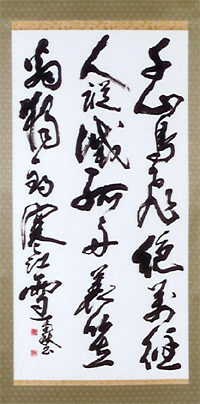 千山鳥飛絶萬徑
人蹤滅孤舟蓑笠
翁獨釣寒江雪